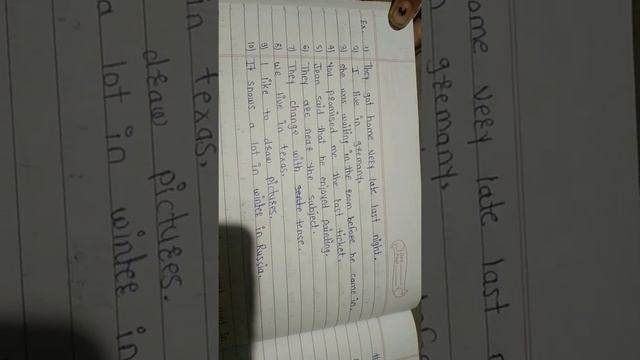 Ex. 1) They got home very late last night.
2) I live in germany.
3) she was waiting in the room before he came in.
4) You promised me the last ticket.
5) Joan said that he enjoyed painting.
6) They are neat the subject.
7) They change with tense.
8) We live in texas.
9) I like to draw pictures.
10) It snows a lot in winter in Russia.
ome very late last
germany,
in texas,
draw pictures.
a lot in winter in